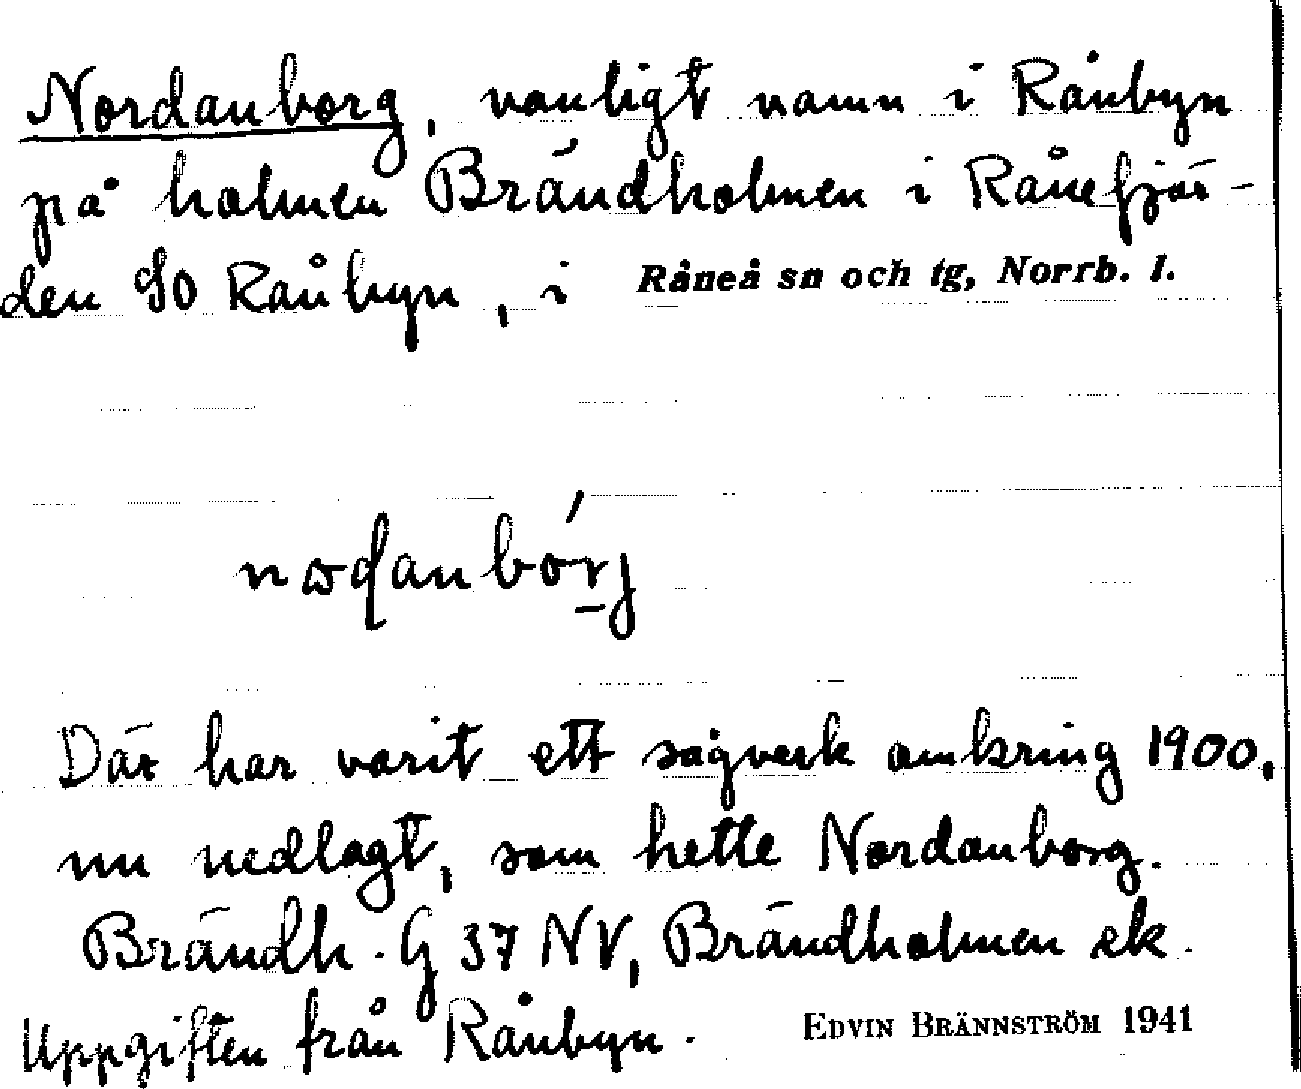 Nordanborg, vanligt namn i Rånbyn
på holmen Brändholmen i Rånefjär-
den SO Rånbyn, i Råneå sn och tg, Norrb. l.
Där har varit ett sågverk omkring 1900,
nu nedlagt, som hette Nordanborg.
Brändh. G 37 NV, Brändholmen ek.
Uppgiften från Rånbyn.
EDVIN BRÄNNSTRÖM 1941